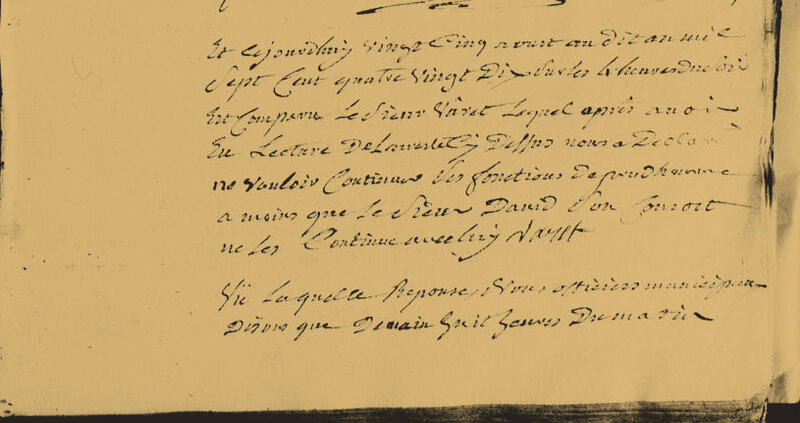 Et cejourdhuy vingt Cinq avoust audit an mil
Sept Cent quatre vingt Dix Sur les 4 heures du soir
Est Comparu le Sieur Varet lequel après avoir
Eu Lecture De Larrete Cy Dessus nous a Declaré
ne vouloir Continuer Ses fonctions de prudhomme
a moins que le Sieur David Son Consort
ne les Continue avec luy Varet
Vû Laquelle Reponse, Nous officiers municipaux
Disons que Demain huit heures Du matin